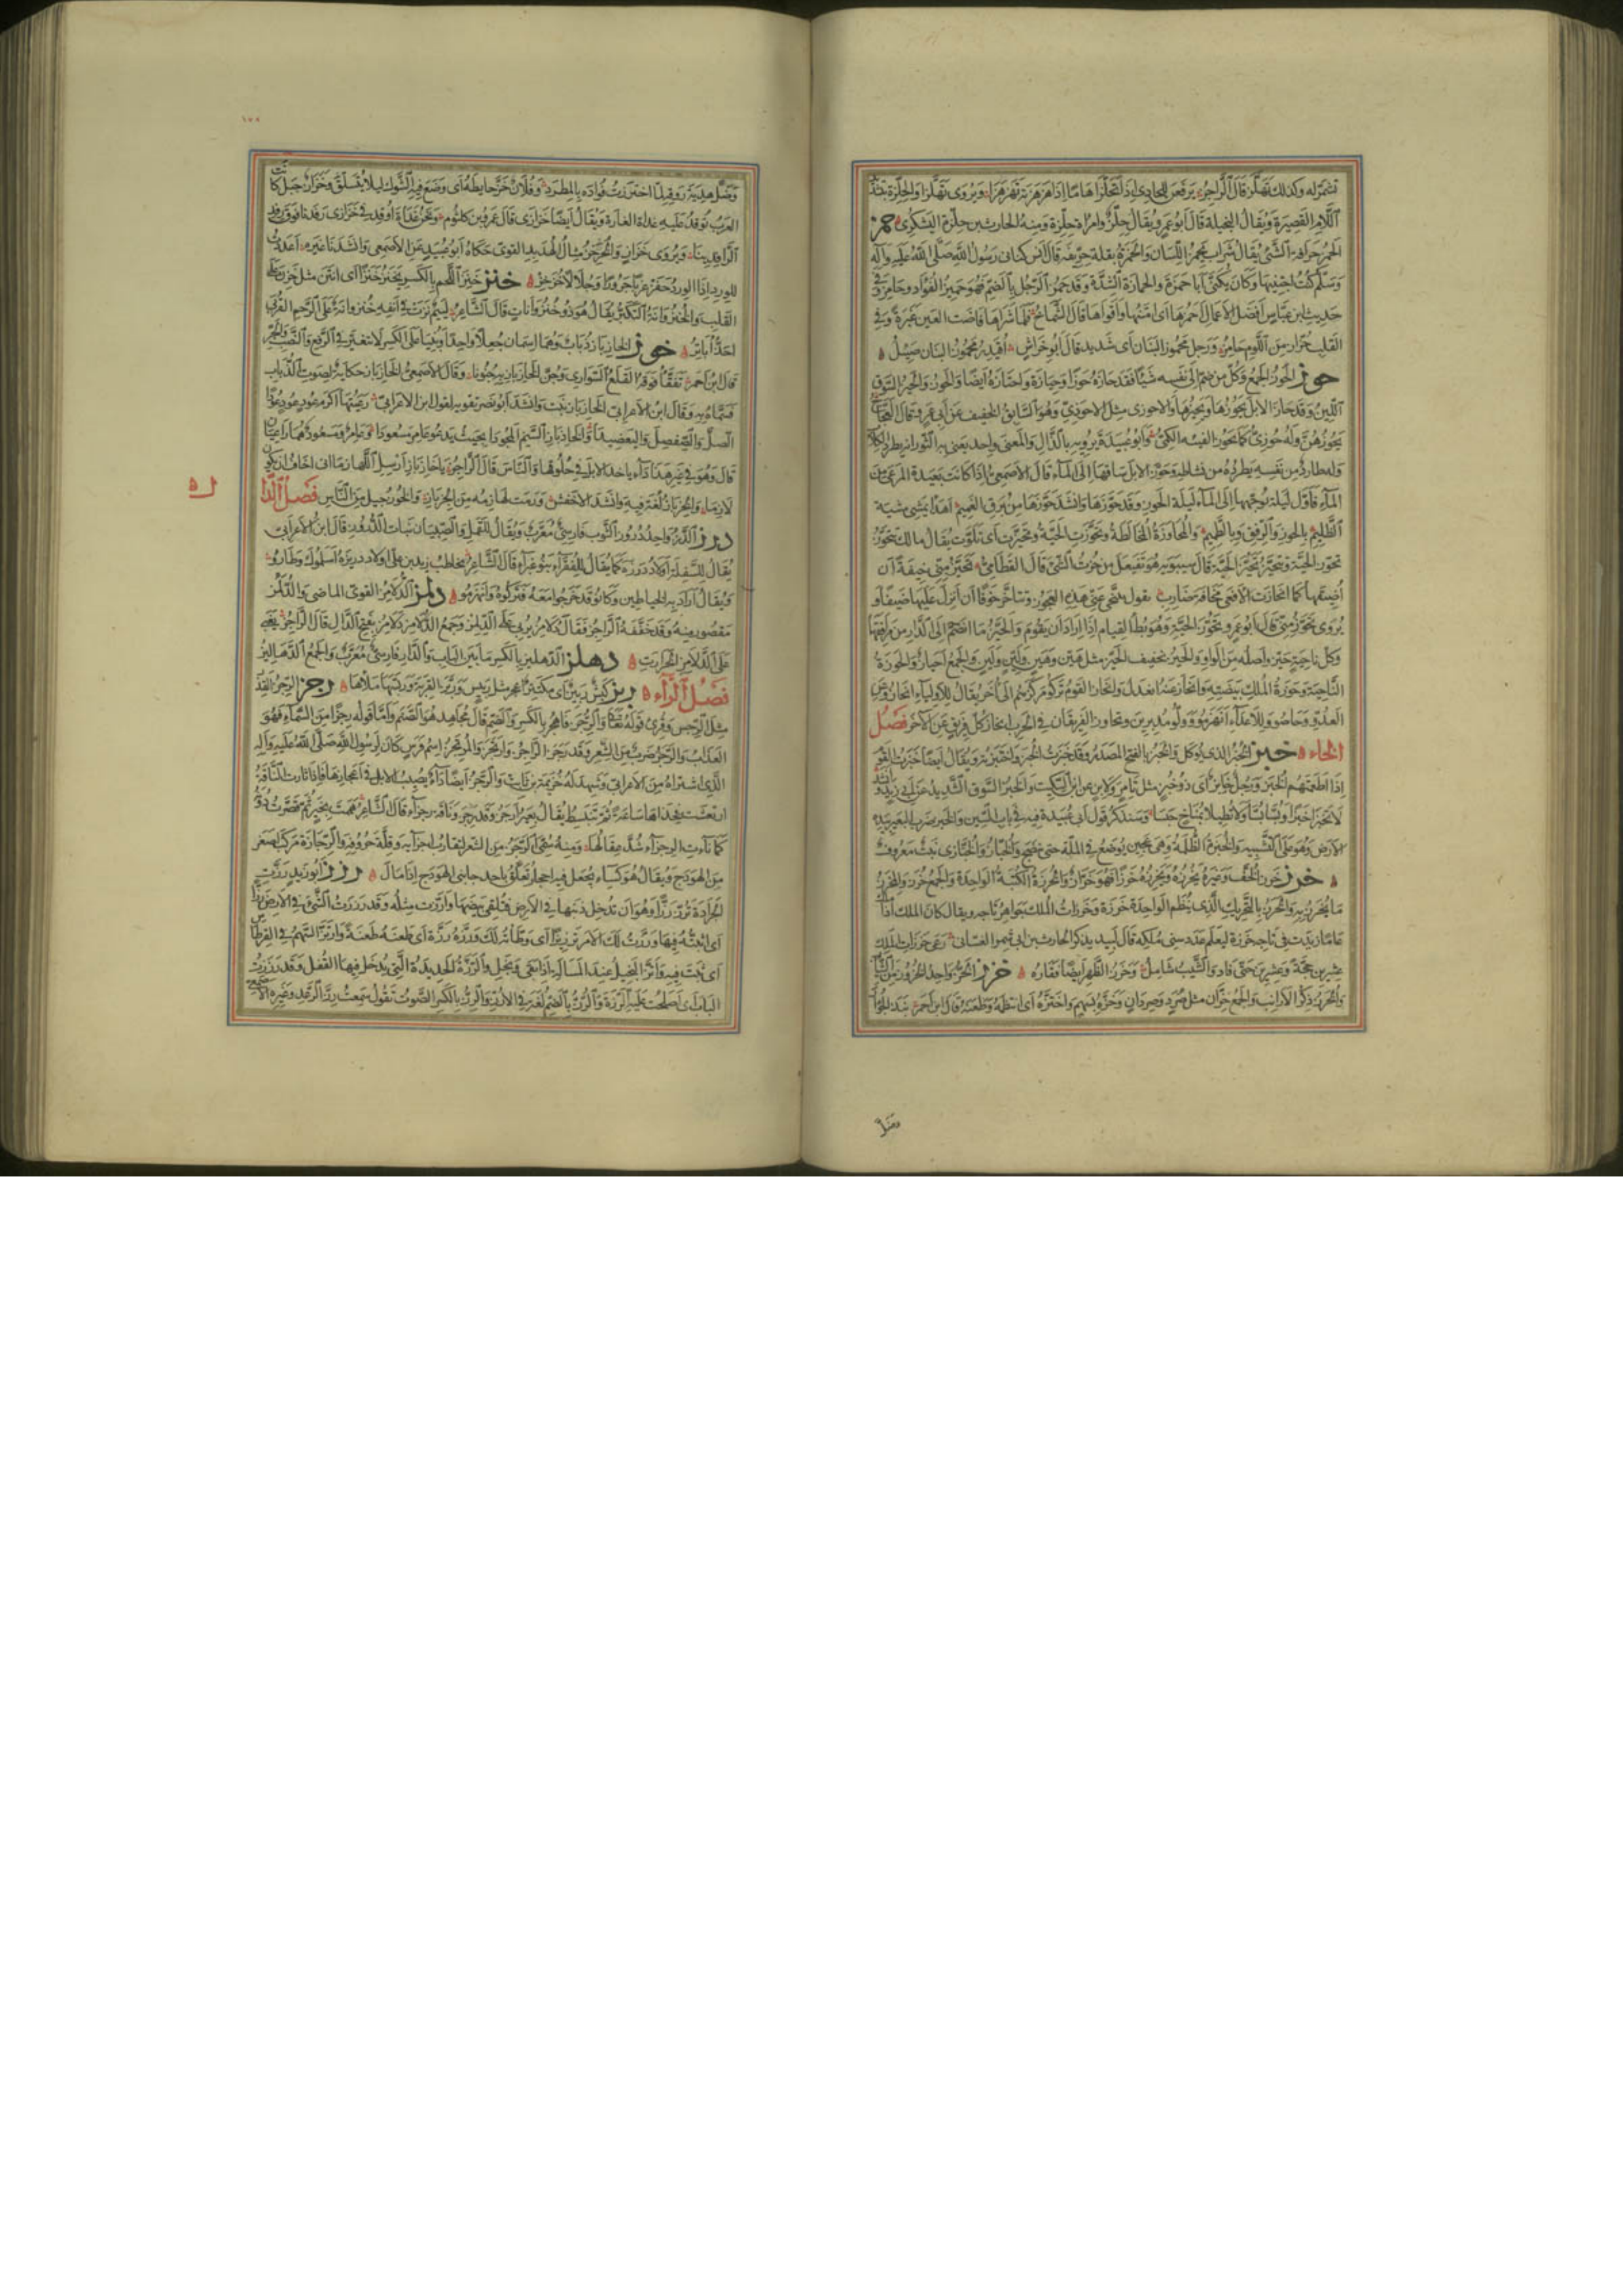 تشمّر له وكذلك تهلّز قال الراجز يرفعن للحادي اذا تحلّزا هاما اذا هزهزته تهزهزا ويروى تهلّزا والحلّزة بتشديد
اللام القصيرة ويقال البخيلة قال ابو عمرو يقال حلّز وامراة حلّزة ومنه الحارث بن حلّزة اليشكرى حمز
الحمز حرافة الشئ يقال شراب يحمز اللسان والحمزة بقلة حرّيفة قال انس كنانى رسول الله صلى الله عليه وآله
وسلم كنت اجتنيها وكان يكنى ابا حمزة والحمازة الشدّة وقد حمز الرجل بالضم فهو حميز الفؤاد وحامز وفى
حديث ابن عباس افضل الاعمال احمزها اى امتنها واقواها قال الشماخ فلما شراها فاضت العين عبرة وفى
القلب حزاز من اللوم حامز ورجل محموز البنان اى شديد قال ابو خراش اقيدر محموز البنان ضئيل
حوز الحوز الجمع وكل من ضم الى نفسه شيئا فقد حازه حوزا وحيازة واحتازه ايضا والحوز والحيز السوق
اللين وقد حاز الابل يحوزها ويحيزها والاحوزى مثل الاحوذى وهو السائق الخفيف عن ابى عمرو قال العجاج
يحوزهن وله حوزى كما يحوز الفئة الكمى وابو عبيدة يرويه بالذال والمعنى واحد يعنى به الثور انه يطرد الكلاب
وله طارد من نفسه يطرده من نشاطه وحوّز الابل ساقها الى الماء قال الاصمعى اذا كانت بعيدة المرعى من
الماء فاول ليلة توجهها الى الماء ليلة الحوز وقد حوّزها وانشد حوّزها من برق الغميم اهدأ يمشى مشية
الظليم بالحوز والرفق وبالطميم والمحاوزة المخالطة وتحوّزت الحيّة وتحيّزت اى تلوّت يقال ما لك تتحوّز
تحوّز الحيّة وتتحيّز تحيّز الحيّة قال سيبويه هو تفيعل من حزت الشئ قال القطامى تحيّز منّى خيفة ان
اضيفها كما انحازت الافعى مخافة ضارب يقول تتنحى عنى هذه العجوز وتتأخر خوفا ان انزل عليها ضيفا و
يروى تحوّز منّى قال ابو عمرو تحوّز الحيّة وهو بطأ القيام اذا اراد ان يقوم والحيّز ما انضم الى الدار من مرافقها
وكل ناحية حيّز واصله من الواو والحيز تخفيف الحيّز مثل هيّن وهين وليّن ولين والجمع احياز والحوزة
الناحية وحوزة الملك بيضته وانحاز عنه انعدل وانحاز القوم تركوا مركزهم الى آخر يقال للاولياء انحازوا عن
العدو وحاصوا وللاعداء انهزموا وولوا مدبرين وتحاوز الفريقان فى الحرب انحاز كل فريق عن الآخر فصل
الخاء خبز الخبز الذى يؤكل والخبز بالفتح المصدر وقد خبزت الخبز واختبزته ويقال ايضا خبزت القوم
اذا اطعمتهم الخبز ورجل خابز اى ذو خبز مثل تامر ولابن عن ابن السكيت والخبز السوق الشديد عن ابى زيد وانشد
لا تخبزا خبزا وبسّا بسّا ولا تطيلا بمناخ حبسا وسنذكر قول ابى عبيدة فيه فى باب السين والخبز ضرب البعير بيده
الارض وهو على التشبيه والخبزة الطلمة وهى عجين يوضع فى الملة حتى ينضج والخباز والخبازى نبت معروف
خرز خرز الخف وغيره يخرزه ويخرزه خرزا فهو خرّاز والخرزة الكتبة الواحدة والجمع خرز والمخرز
ما يخرز به والخرز بالتحريك الذى ينظم الواحدة خرزة وخرزات الملك جواهر تاجه ويقال كان الملك اذا ملك
عاما زيدت فى تاجه خرزة ليعلم عدد سنى ملكه قال لبيد يذكر الحارث بن ابى شمر الغسانى رعى خرزات الملك
عشرين حجة وعشرين حتى فاد والشيب شامل وخرز الظهر ايضا فقاره خزز الخزّ واحد الخزوز من الثياب
والخزز ذكر الارانب والجمع خزّان مثل صرد وصردان وخزّه بسهم واختزّه اى انتظمه وطعنه قال ابن احمر
فصل
١٥٩
العرب توقد عليه غداة الغارة ويقال ايضا خزازى قال عمرو بن كلثوم ونحن غداة اوقد فى خزازى رفدنا فوق رفد
الرافدينا ويروى خزاز والخزخز مثال الهدبد القوى حكاه ابو عبيد عن الاصمعى وانشدنا غيره اعددت
للورد اذا الورد حفز غربا جرورا وجلالا خزخز خنز خنز اللحم بالكسر يخنز خنزا اى انتن مثل خزن على
القلب والخنزوانة التكبر يقال هو ذو خنزوانات قال الشاعر لئيم نزت فى انفه خنزوانة على الرحم القربى
احذّ اباتر خوز الخازباز ذباب وهما اسمان جعلا واحدا وبنيا على الكسر لا يتغير فى الرفع والنصب والجر
قال ابن احمر تفقّأ فوقه القلع السوارى وجنّ الخازباز به جنونا وقال الاصمعى الخازباز حكاية لصوت الذباب
فسماه به وقال ابن الاعرابى الخازباز نبت وانشد ابو نصر تقوية لقول ابن الاعرابى رعيتها اكرم عود عودا
الصلّ والصفصلّ واليعضيدا والخازباز السنم المجودا بحيث يدعو عامر مسعودا وعامر ومسعود هما راعيان
قال وهو فى غير هذا داء ياخذ الابل فى حلوقها والناس قال الراجز يا خازباز ارسل اللهازما انى اخاف ان تكون
لازما والخزباز لغة فيه وانشد الاخفش ورمت لهازمه من الخزباز والخوز جيل من الناس فصل الدا
ل
درز الدرز واحد دروز الثوب فارسى معرب ويقال للقمل والصئبان بنات الدروز قال ابن الاعرابى
يقال للسفلة اولاد درزة كما يقال للفقراء بنو غبراء قال الشاعر يخاطب زيد بن على اولاد درزة اسلموك وطاروا
ويقال اراد به الخياطين وكانوا قد خرجوا معه فتركوه وانهزموا دلمز الدلامز القوى الماضى والدلمز
مقصور منه وقد خففه الراجز فقال دلامز يربى على الدلمز وجمع الدلامز دلامز بفتح الدال قال الراجز يغبى
على الدلامز الخرارت دهلز الدهليز بالكسر ما بين الباب والدار فارسى معرب والجمع الدهاليز
فصل الراء ربز كبش ربيز اى مكتنز اعجر مثل ربيس وربّز القربة وربّسها ملأها رجز الرجز القذر
مثل الرجس وقرئ قوله تعالى والرجز فاهجر بالكسر والضم قال مجاهد هو الصنم واما قوله رجزا من السماء فهو
العذاب والرجز ضرب من الشعر وقد رجز الراجز وارتجز والمرتجز اسم فرس كان لرسول الله صلى الله عليه وآله
الذى اشتراه من الاعرابى وشهد له خزيمة بن ثابت والرجز ايضا داء يصيب الابل فى اعجازها فاذا ثارت الناقة
ارتعشت فخذاها ساعة ثم تنبسط يقال بعير ارجز وقد رجز وناقة رجزاء قال الشاعر هممت بخير ثم قصرت دونه
كما ناءت الرجزاء شدّ عقالها ومنه سمى الرجز من الشعر لتقارب اجزائه وقلة حروفه والرجازة مركب اصغر
من الهودج ويقال هو كساء يجعل فيه احجار تعلق باحد جانبى الهودج اذا مال رزز ابو زيد رزّت
الجرادة ترزّ رزّا وهو ان تدخل ذنبها فى الارض فتلقى بيضها وارزّت مثله وقد رززت الشئ فى الارض رزا
اى اثبتّه فيها ورزّزت لك الامر ترزيزا اى وطّأته لك ورزّه رزّة اى طعنه طعنة وارتزّ السهم فى القرطاس
اى ثبت فيه وارتزّ البخيل عند المسألة اذا بقى وبخل والرزّة الحديدة التى يدخل فيها القفل وقد رززت
الباب اى اصلحت عليه الرزة والرزّ بالضم لغة فى الارز والرزّ بالكسر الصوت تقول سمعت رزّ الرعد وغيره